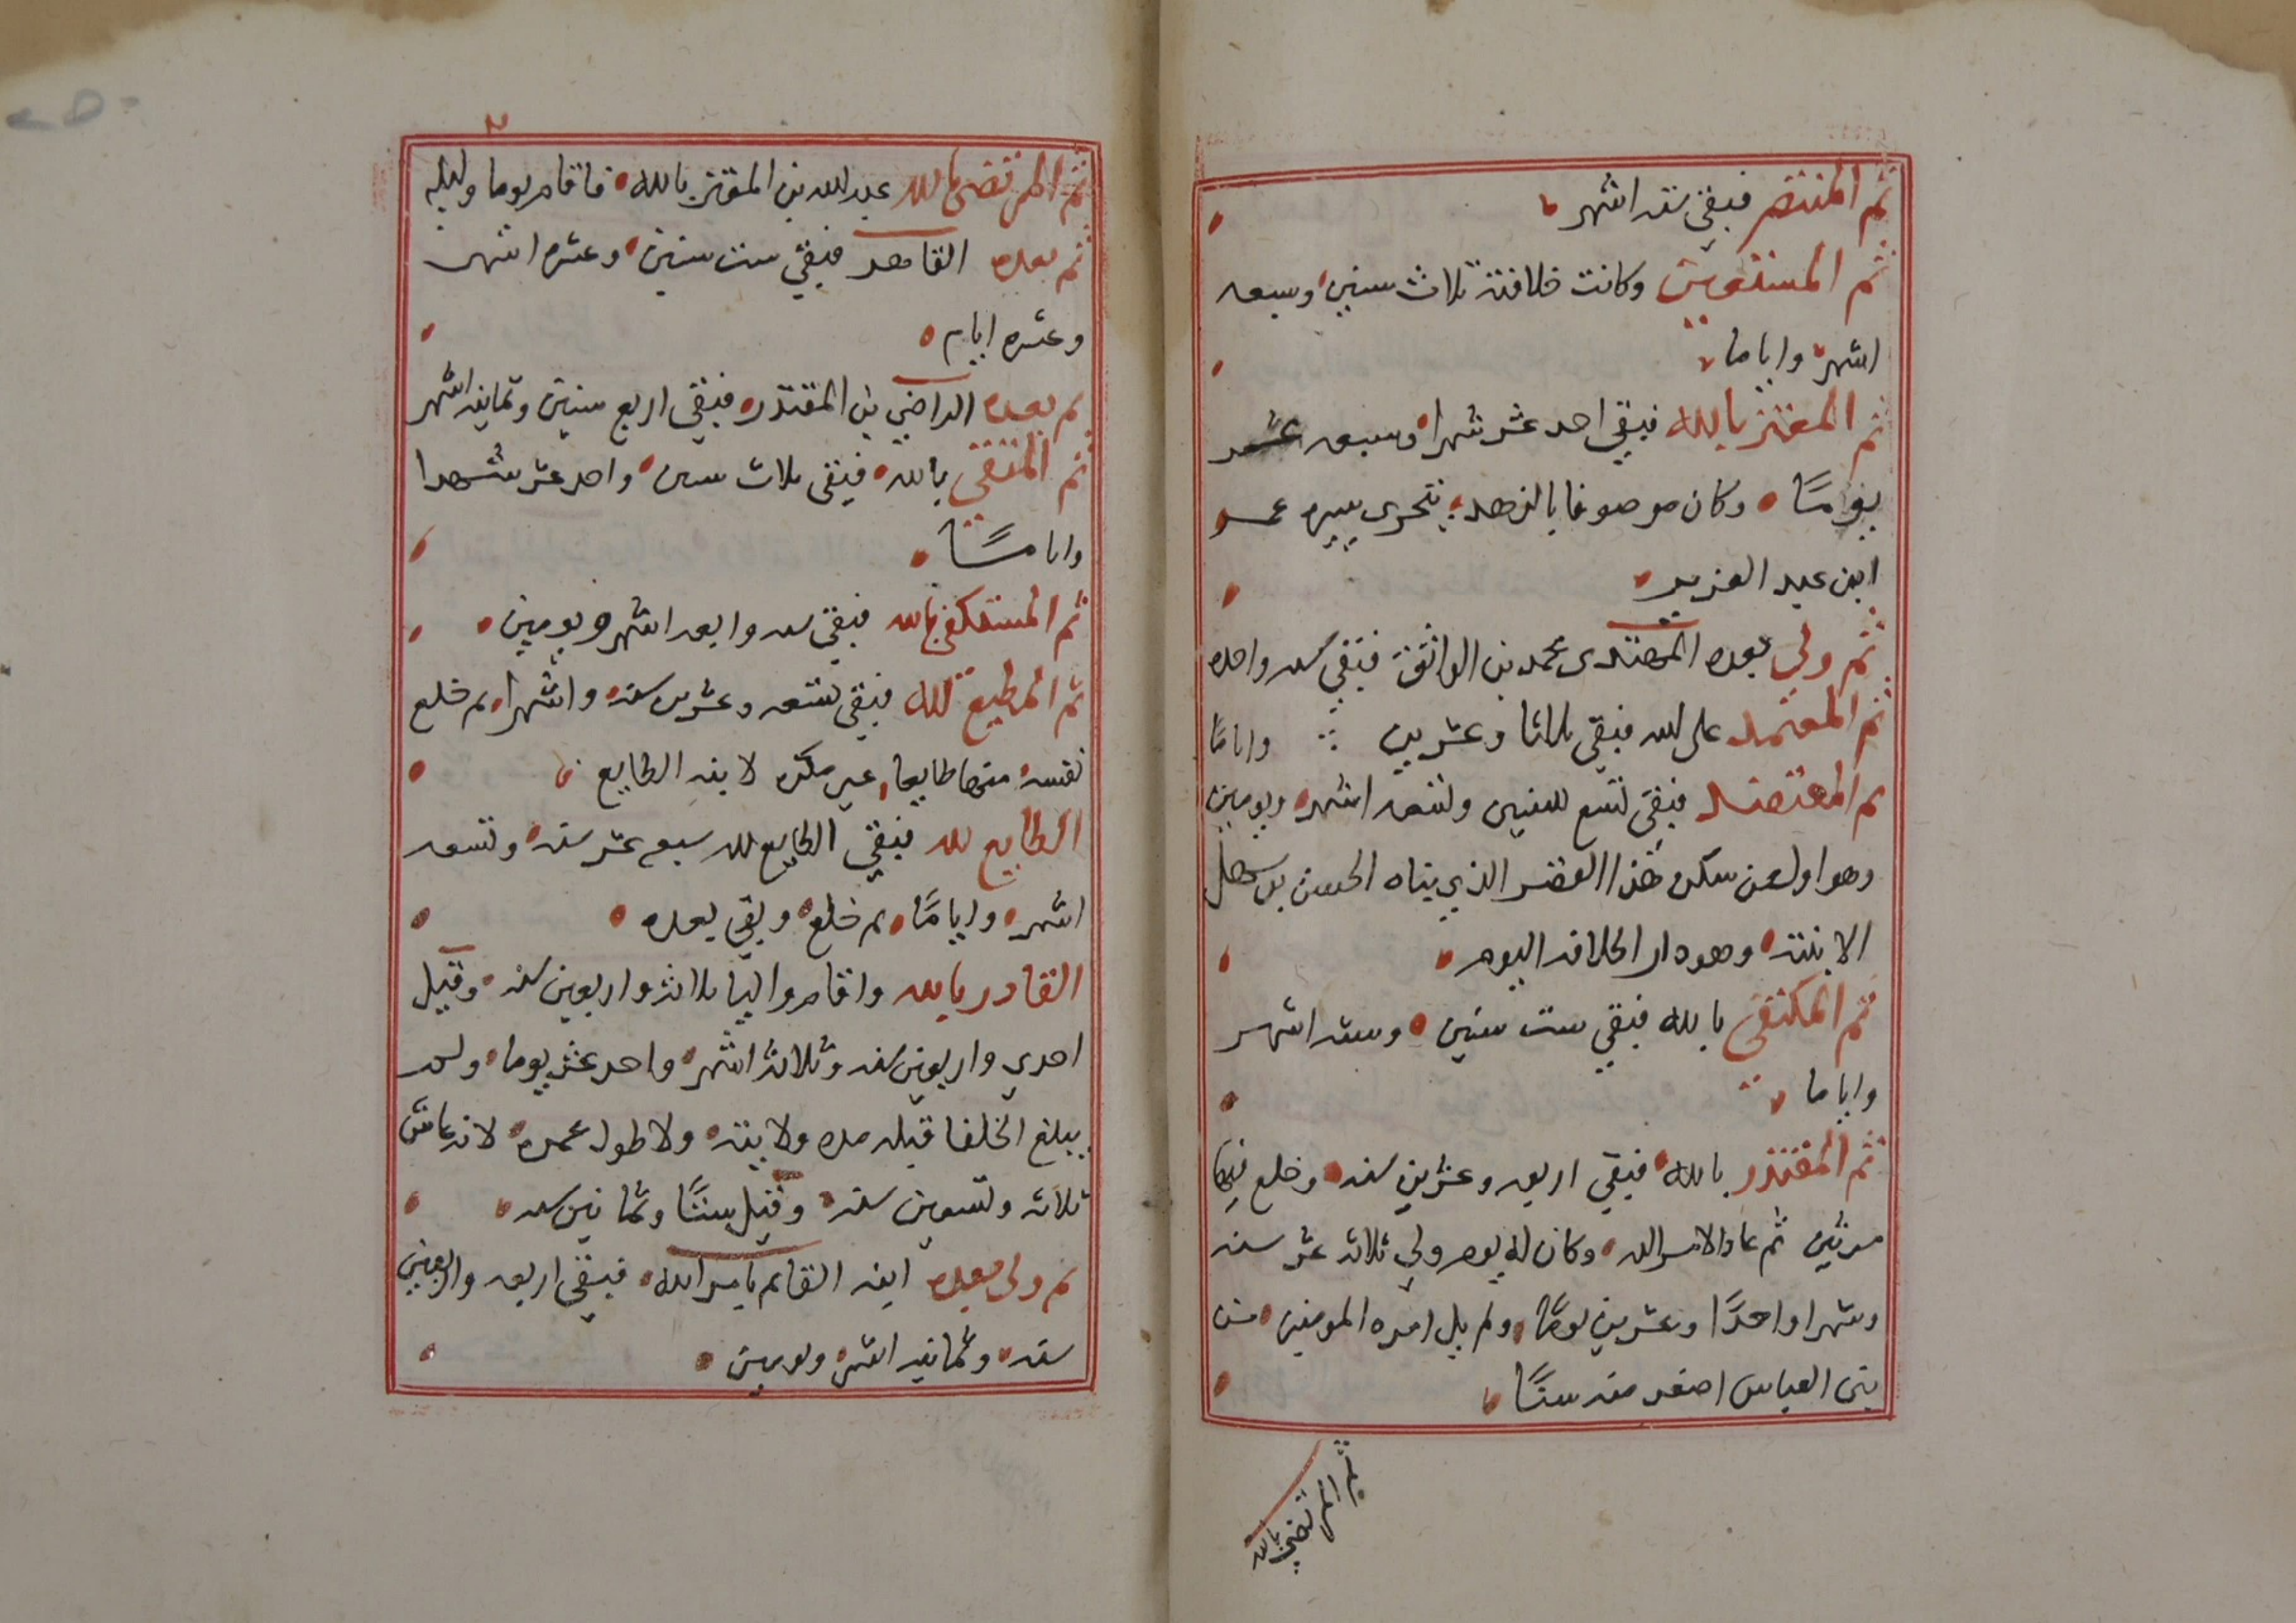 ثم المنتصر فبقي سته اشهر
ثم المستعين وكانت خلافته ثلاث سنين وسبعه
اشهر واياما
ثم المعتز بالله فبقي احد عشر شهرا وسبعه عشر
يومًا وكان موصوفا بالزهد يتحرى سيره عمر
ابن عبد العزيز
ثم ولي بعده المهتدى محمد بن الواثق فبقي سنه واحده
ثم المعتمد على الله فبقي ثلاثا وعشرين واياما
ثم المعتضد فبقي تسع سنين وتسعه اشهر ويومين
وهو اول من سكن هذا القصر الذي بناه الحسن بن سهل
لابنته وهو دار الخلافه اليوم
ثم المكتفي بالله فبقي ست سنين وسته اشهر
واياما
ثم المقتدر بالله فبقي اربعه وعشرين سنه وخلع فيها
مرتين ثم عاد الامر اليه وكان له يوم ولي ثلاثه عشر سنه
وشهرا واحدًا وعشرين يومًا ولم يل امره المومنين من
بني العباس اصغر منه سنًا
ثم المرتضي بالله
ثم المرتضى بالله عبد الله بن المعتز بالله فاقام يوما وليله
ثم بعده القاهر فبقي ست سنين وعشره اشهر
وعشره ايام
ثم بعده الراضي بن المقتدر فبقي اربع سنين وثمانيه اشهر
ثم المتقي بالله فبقي ثلاث سنين واحد عشر شهرا
وايامًا
ثم المستكفي بالله فبقي سنه واربعه اشهر ويومين
ثم المطيع لله فبقي تسعه وعشرين سنه واشهرا ثم خلع
نفسه منها طايعا غير مكره لابنه الطايع
الطايع لله فبقي الطايع لله سبع عشر سنه وتسعه
اشهر وايامًا ثم خلع وبقي بعده
القادر بالله واقام واليا ثلاثه واربعين سنه وقيل
احدي واربعين سنه وثلاثه اشهر واحد عشر يوما ولم
يبلغ الخلفا قبله مده ولايته ولا طول عمره لانه عاش
ثلاثه وتسعين سنه وقيل ستًا وثمانين سنه
ثم ولى بعده ابنه القايم بامر الله فبقي اربعه واربعين
سنه وثمانيه اشهر ويومين